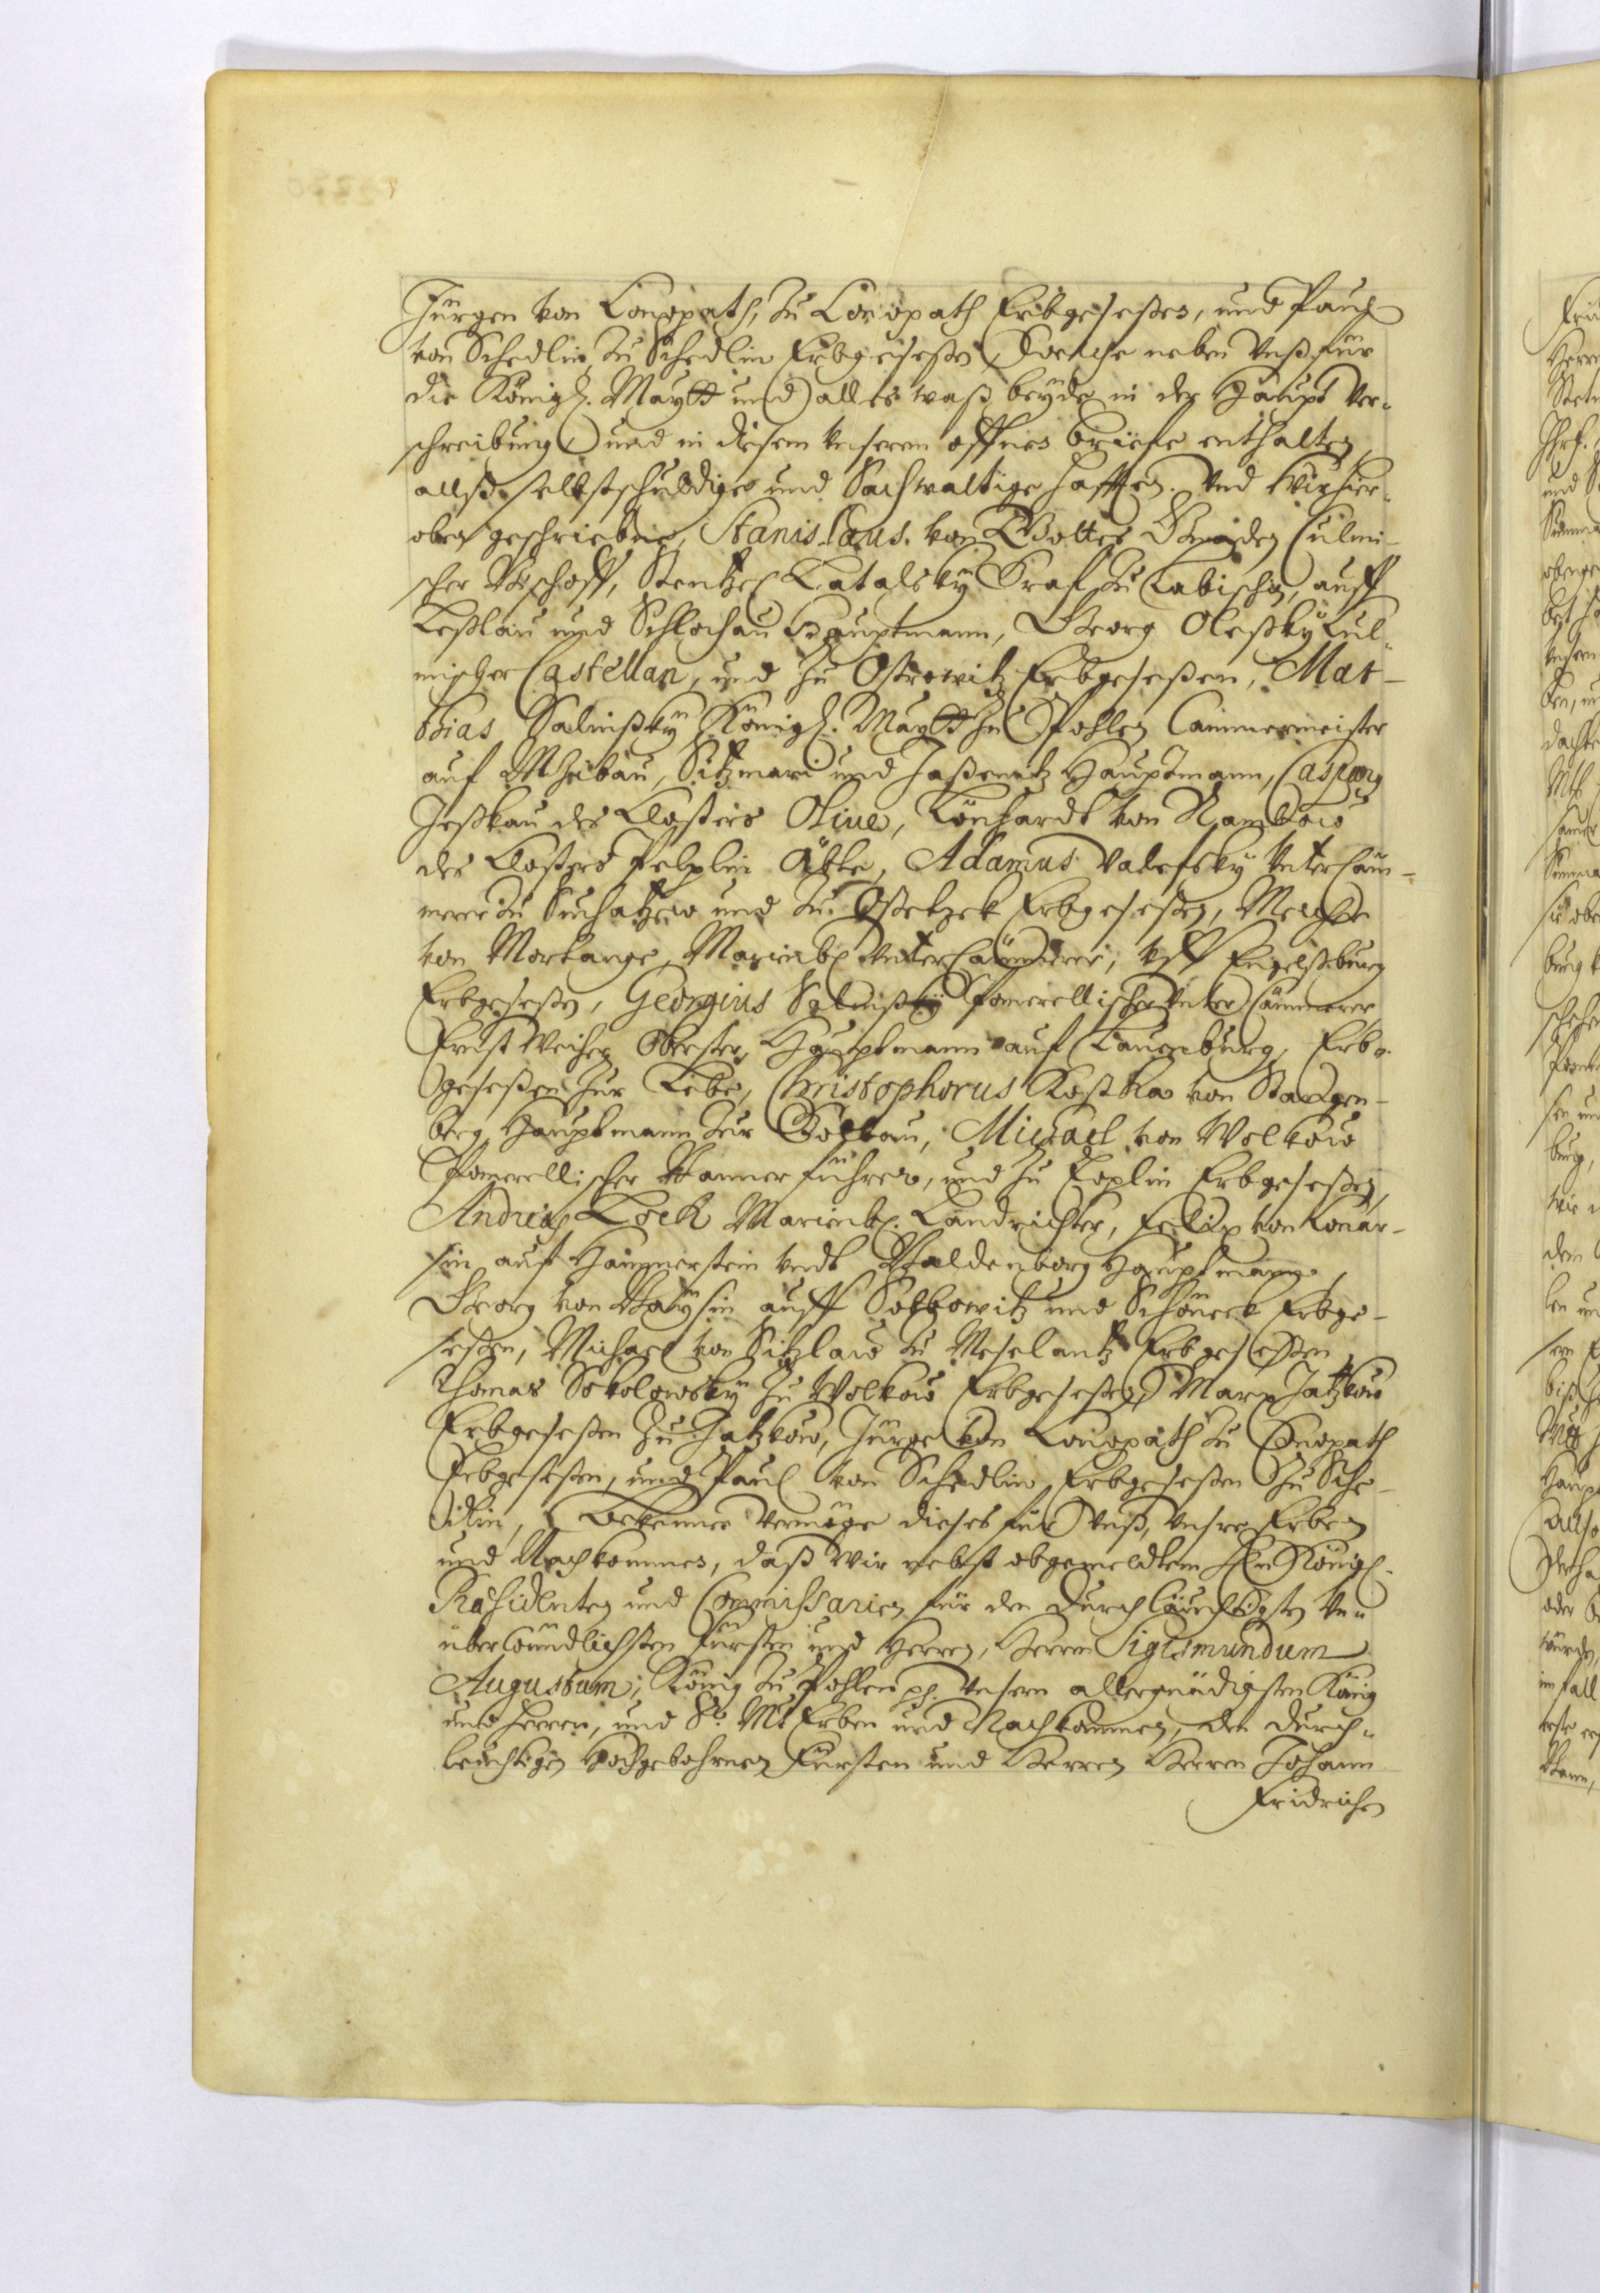 Jürgen von Conopath, zu Conopath Erbgeseßen, und Paul
von Schedlin, zu Schedlin Erbgeseßen, welche neben Unß für
die Königl. Maytt und alles waß beyde in der Haupt Ver-
schreibung und in diesem Unserem offnen briefe enthalten
allß selbstschuldige und Sachwaltige hafften. Und Wir hier-
oben geschriebene, Stanislaus von Gottes Gnaden Culmi-
scher Bischoff, Stentzel Latalsky Graf zu Labischen, auff
Leßlau und Schlochau Hauptmann, Georg Oleßky Cul-
mischer Castellan, und zu Ostrowitz Erbgeseßen, Mat-
thias Salinßky Königl. Maytt zu Pohlen Cammermeister
auf Hauptmann, Caspar
Jeßkau des Closters Olive, Lönhardt von Rambow
des Closters Pelplin Äbte, Adamus Valefsky Untercäm-
merer zu und zu Erbgeseßen, Melcher
von Mortange, Marienb. Untercämmerer, Uff Engelßburg
Erbgeseßen, Georgius Salinßky Pomerellischer Unter Cämmerer
Ernst Weiher Obrister, Hauptmann auf Lauenburg, Erb-
geseßen zur Lebe, Christophorus Kostka von Stangen-
berg Hauptmann zur Golbau, Michael von Wolkow
Pomerellischer Banner führer, und zu Erbgeseßen,
Andreas Lock Marienb. Landrichter, Felix von Konar-
sin auf Hammerstein undt Baldenborg Hauptmann,
Georg von Baysin auff Sobbowitz und Schöneck Erbge-
seßen, Michael von Sitzlaw zu Weselantz Erbgeseßen
Thomas Sokolowsky zu Wolkow Erbgeseßen, Marx Jatzkow
Erbgeseßen zu Jatzkow, Jürge von Conopath zu Conopath
Erbgeseßen, und Paul von Schedlin, Erbgeseßen zu Sche-
dlin, Bekennen vermöge dieses für Unß, Unsre Erben
und Nachkommen, daß Wir nebst obgemeldtem Hn Königl.
Räsidenten und Commissarien für den Durchläuchtigsten Un-
überwündlichsten Fürsten und Herren, Herrn Sigismundum
Augustum, König zu Pohlen pp. Unsern allergnädigsten König
und Herrn, und Sr. Mt Erben und Nachkommen, den Durch-
leuchtigen Hochgebohrnen Fürsten und Herren Herrn Johann
Fridrichen